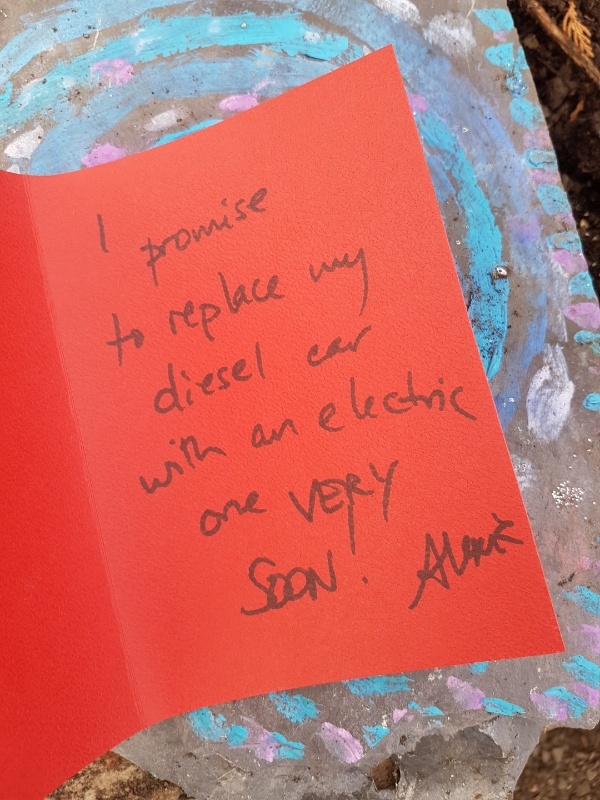 I promise
to replace my
diesel car
with an electric
one VERY
SOON!